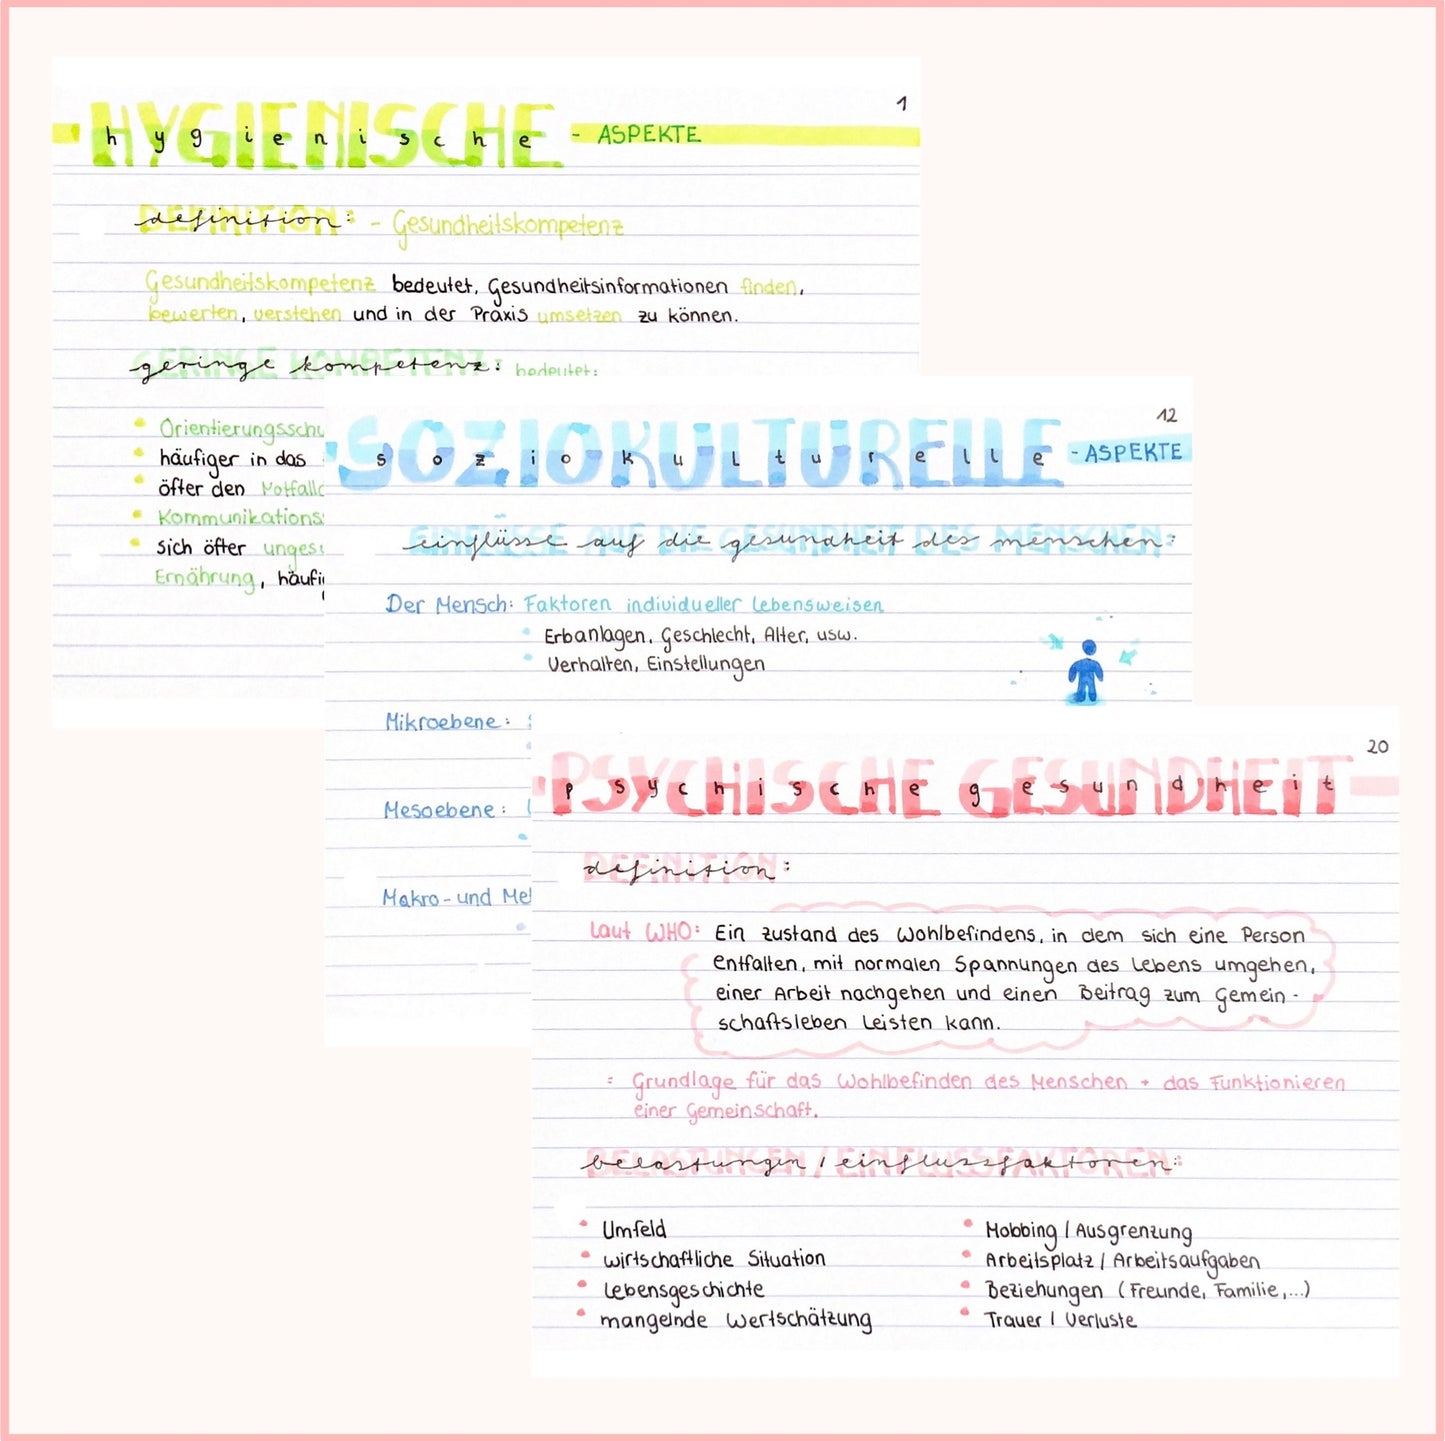 1
HYGIENISCHE
hygienische - ASPEKTE
DEFINITION
definition: - Gesundheitskompetenz
Gesundheitskompetenz bedeutet, Gesundheitsinformationen finden,
bewerten, verstehen und in der Praxis umsetzen zu können.
GERINGE KOMPETENZ
geringe kompetenz: bedeutet:
• Orientierungsschu
• häufiger in das
• öfter den Notfall
• Kommunikations
• sich öfter unges
Ernährung, häufi
12
SOZIOKULTURELLE
soziokulturelle - ASPEKTE
EINFLÜSSE AUF DIE GESUNDHEIT DES MENSCHEN
einflüsse auf die gesundheit des menschen:
Der Mensch: Faktoren individueller Lebensweisen
• Erbanlagen, Geschlecht, Alter, usw.
• Verhalten, Einstellungen
Mikroebene:
Mesoebene:
Makro- und Me
20
PSYCHISCHE GESUNDHEIT
psychische gesundheit
DEFINITION
definition:
Laut WHO: Ein Zustand des Wohlbefindens, in dem sich eine Person
entfalten, mit normalen Spannungen des Lebens umgehen,
einer Arbeit nachgehen und einen Beitrag zum Gemein-
schaftsleben leisten kann.
= Grundlage für das Wohlbefinden des Menschen + das Funktionieren
einer Gemeinschaft.
BELASTUNGEN / EINFLUSSFAKTOREN
belastungen / einflussfaktoren:
• Umfeld
• wirtschaftliche Situation
• Lebensgeschichte
• mangelnde Wertschätzung
• Mobbing / Ausgrenzung
• Arbeitsplatz / Arbeitsaufgaben
• Beziehungen (Freunde, Familie,...)
• Trauer / Verluste